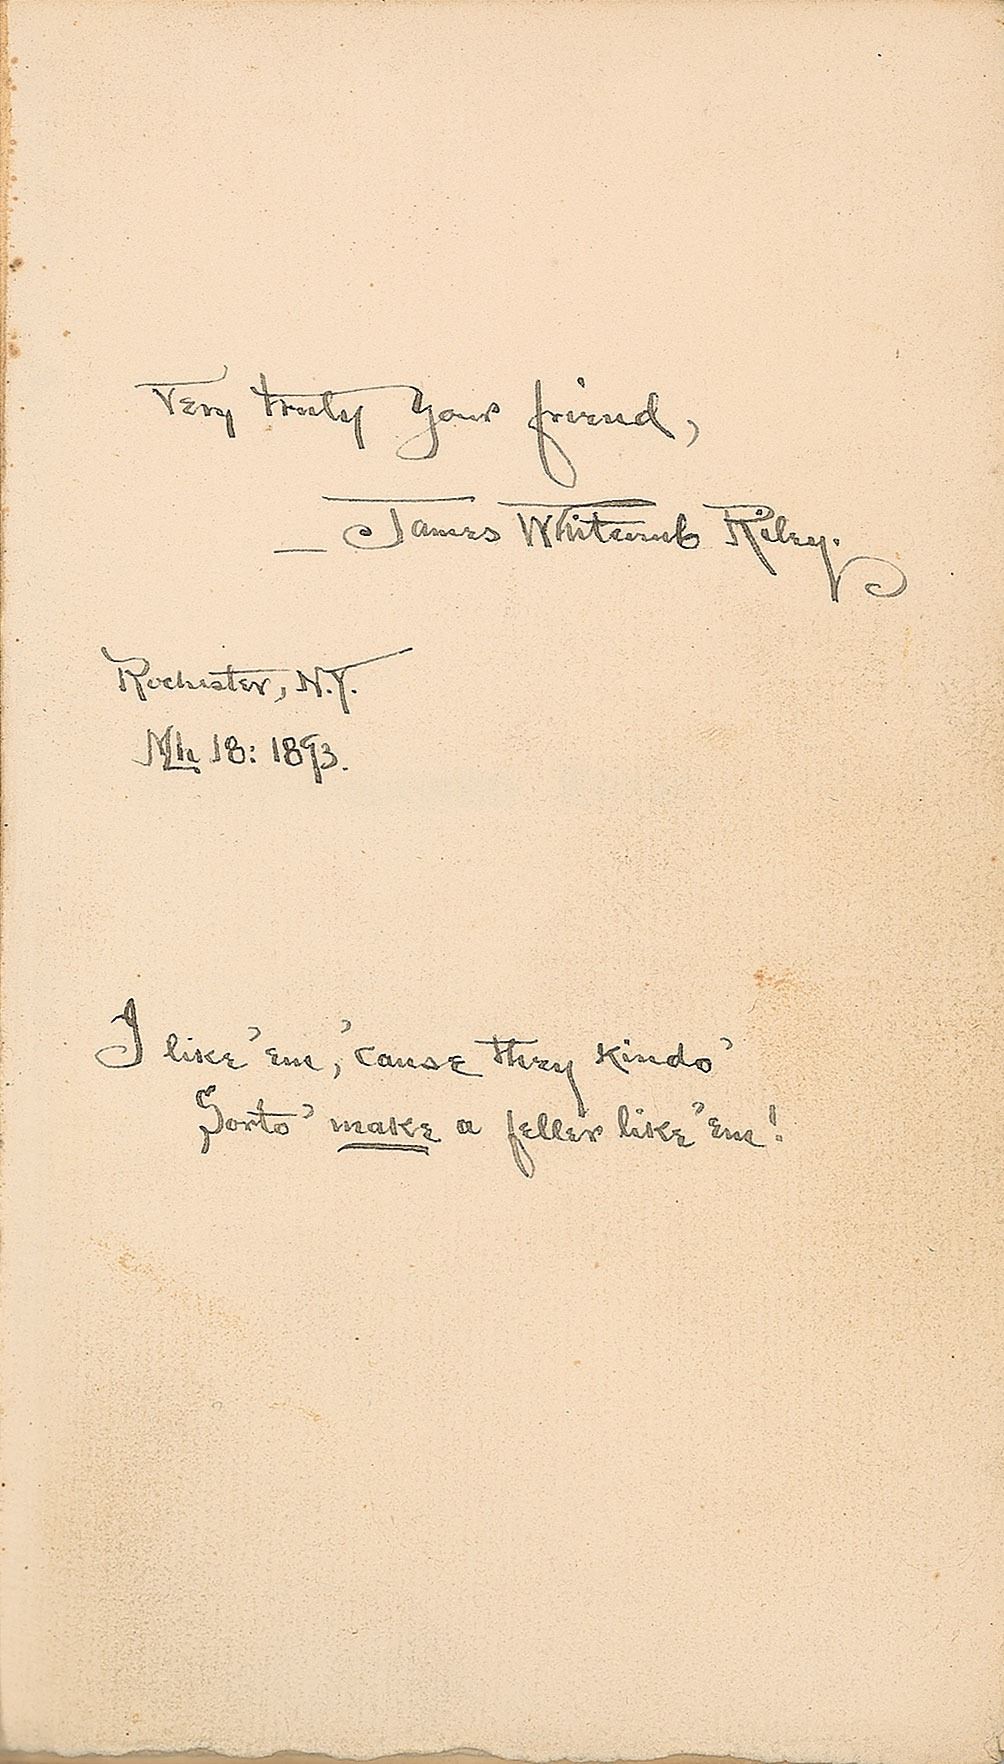 Very truly your friend,
— James Whitcomb Riley.
Rochester, N.Y.
Mh 18: 1893.
I like 'em, 'cause they kindo'
Sorto' make a feller like 'em!